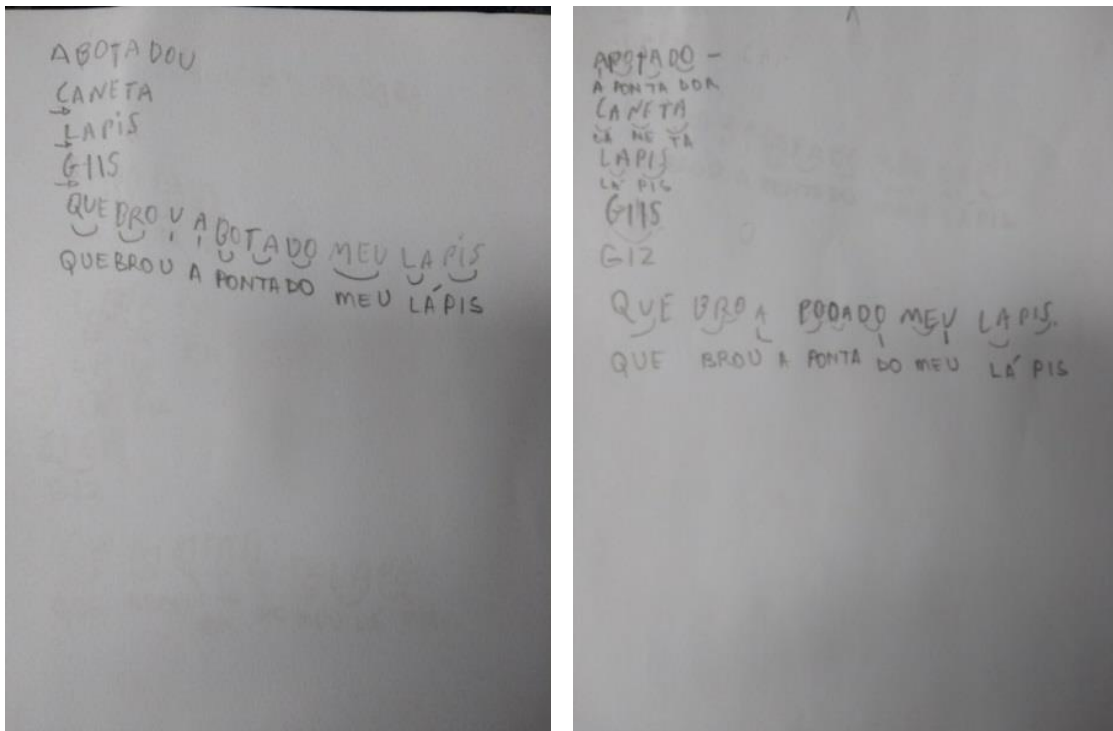 ABOTADOU
CANETA
LAPIS
GIIS
QUEBROU A BOTADO MEU LAPIS
QUEBROU A PONTADO MEU LÁPIS
APOTADO -
A PONTA DOR
CANETA
CA NE TA
LAPIS
LÁ PIS
GIIS
GIZ
QUE BRO A PODADO MEU LAPIS.
QUE BROU A PONTA DO MEU LÁ PIS